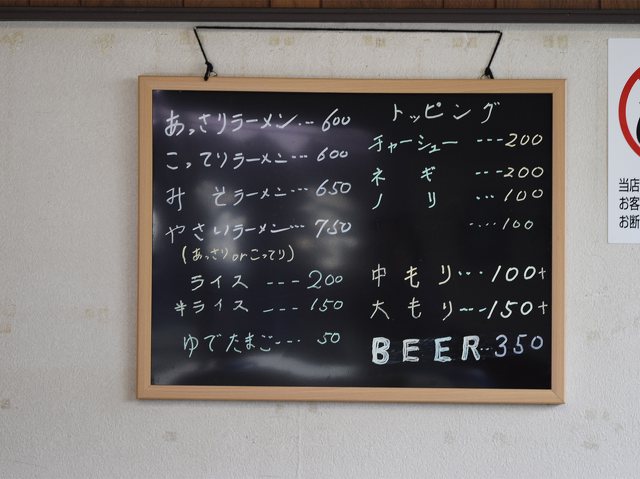 あっさりラーメン…600
こってりラーメン…600
みそラーメン…650
やさいラーメン…750
(あっさりorこってり)
ライス ---200
半ライス ---150
ゆでたまご---50
トッピング
チャーシュー ---200
ネギ ---200
ノリ …100
…100
中もり…100+
大もり…150+
BEER…350
当店
お客
お断